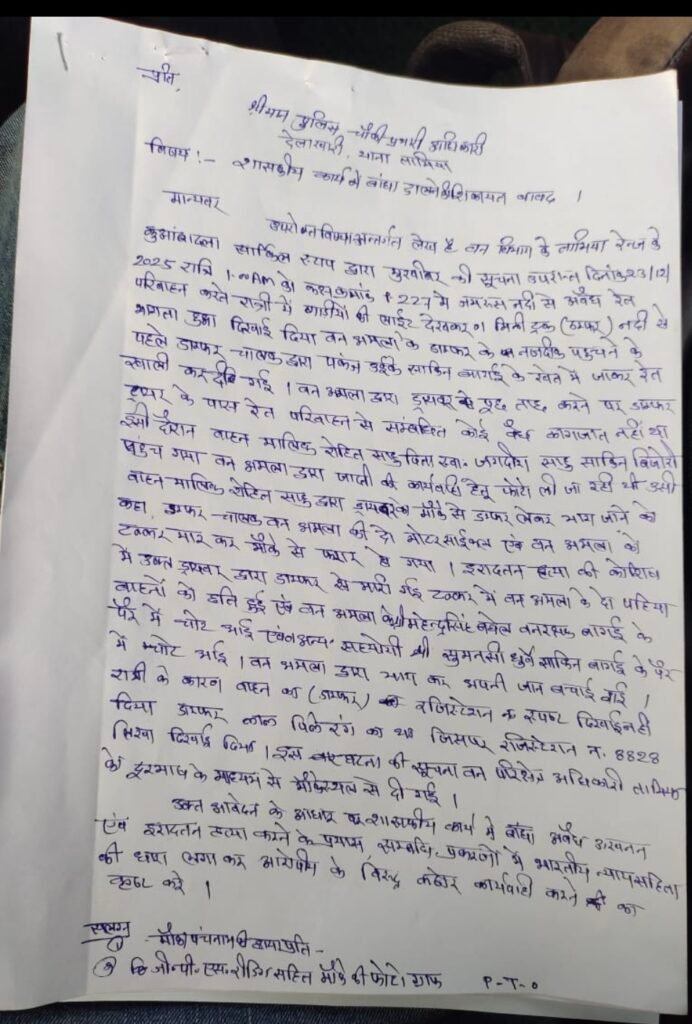 प्रति,
श्रीमान पुलिस चौकी प्रभारी अधिकारी
देलाखारी, थाना तामिया
विषय :- शासकीय कार्य में बांधा डालने की शिकायत बावद ।
मान्यवर
उपरोक्त विषयान्तर्गत लेख है वन विभाग के तामिया रेन्ज के
कुआंबादला सर्किल स्टाप द्वारा मुखबीर की सूचना उपरान्त दिनांक 23/12/
2025 रात्रि 1:00AM को कक्ष क्रमांक P-227 में जमरस नदी से अवैध रेत
परिवाहन करते रात्री में गाडीयों की लाईट देखकर 01 मिनी ट्रक (डम्फर) नदी से
भागता हुआ दिखाई दिया वन अमला के डाम्फर के नजदीक पहुचने के
पहले डाम्फर चालक द्वारा पकंज उईके साकिन बागई के खेत में जाकर रेत
खाली कर दी गई । वन अमला द्वारा ड्रायवर से पुछ ताछ करने पर डम्फर
ड्रायवर के पास रेत परिवाहन से सम्बंधित कोई वैध कागजात नहीं था
इसी दौरान वाहन मालिक रोहित साहु पिता स्व. जगदीश साहु साकिन बिजोरी
पहुंच गया वन अमला द्वारा जप्ती की कार्यवाही हेतु फोटो ली जा रही थी उसी
वाहन मालिक रोहित साहु द्वारा ड्रायवर को मौके से डाम्फर लेकर भाग जाने को
कहा, डाम्फर चालक वन अमला की दो मोटरसाईकल एवं वन अमला को
टक्कर मार कर मौके से फरार हो गया । इरादतन हत्या की कोशिश
में उक्त ड्रायवर द्वारा डाम्फर से मारी गई टक्कर में वन अमला के दो पहिया
वाहनों को क्षति हुई एवं वन अमला के श्री महेन्द्रसिंह बघेल वनरक्षक बागई के
पैर में चोट आई एवं अन्य सहयोगी श्री सुमनसी धुर्वे साकिन बागई के पैर
में चोट आई । वन अमला द्वारा भाग कर अपनी जान बचाई गई ।
रात्री के कारण वाहन का (डाम्फर) रजिस्टेशन न. स्पष्ट दिखाई नही
दिया डाम्फर रंग का था जिसपर रजिस्टेशन न. 8828
लिखा दिखाई दिया । इस घटना की सूचना वन परिक्षेत्र अधिकारी तामिया
को दूरभाष के माध्यम से मौके स्थल से दी गई ।
उक्त आवेदन के आधार पर शासकीय कार्य में बांधा अवैध उत्खनन
एवं इरादतन हत्या करने के प्रयास सम्बंधि प्रकरणों में भारतीय न्यायसंहिता
की धारा लगा कर आरोपीय के विरूद्ध कठोर कार्यवाही करने का
कष्ट करे ।
सलग्न
① मौका पंचनामा की छायाप्रति -
② जी.पी.एस. रीडिंग सहित मौके की फोटो ग्राफ P-T-O